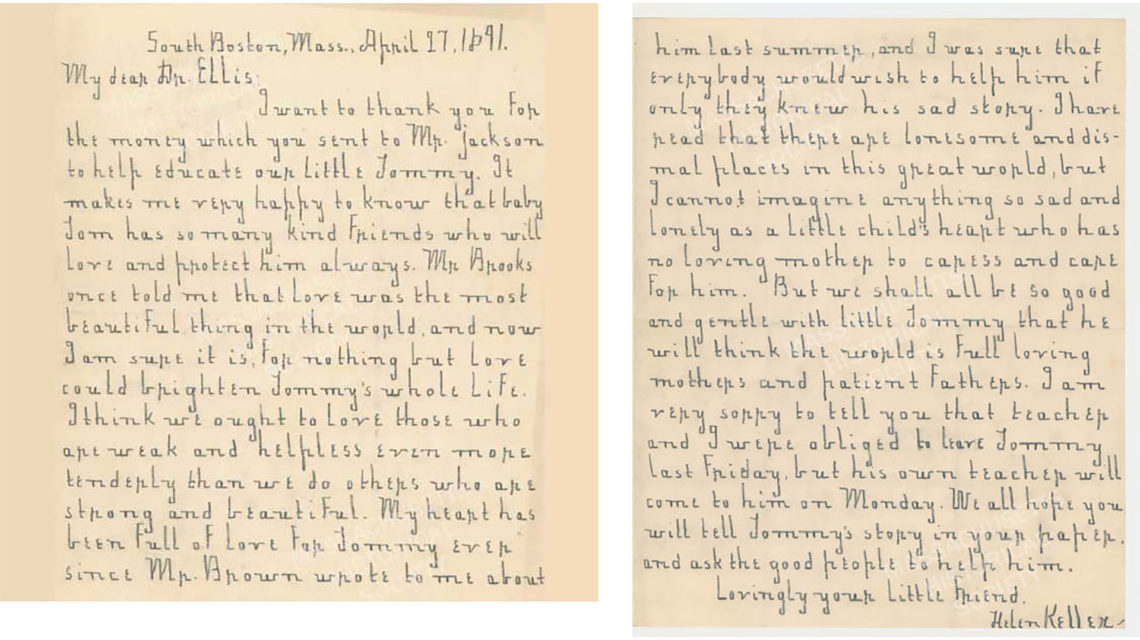 South Boston, Mass., April 27, 1891.
My dear Dr. Ellis:
I want to thank you for
the money which you sent to Mr. Jackson
to help educate our little Tommy. It
makes me very happy to know that baby
Tom has so many kind friends who will
love and protect him always. Mr Brooks
once told me that love was the most
beautiful thing in the world, and now
I am sure it is, for nothing but love
could brighten Tommy's whole life.
I think we ought to love those who
are weak and helpless even more
tenderly than we do others who are
strong and beautiful. My heart has
been full of love for Tommy ever
since Mr. Brown wrote to me about
him last summer, and I was sure that
everybody would wish to help him if
only they knew his sad story. I have
read that there are lonesome and dis-
mal places in this great world, but
I cannot imagine anything so sad and
lonely as a little child's heart who has
no loving mother to caress and care
for him. But we shall all be so good
and gentle with little Tommy that he
will think the world is full loving
mothers and patient fathers. I am
very sorry to tell you that teacher
and I were obliged to leave Tommy
last Friday, but his own teacher will
come to him on Monday. We all hope you
will tell Tommy's story in your paper,
and ask the good people to help him.
Lovingly your little friend.
Helen Keller